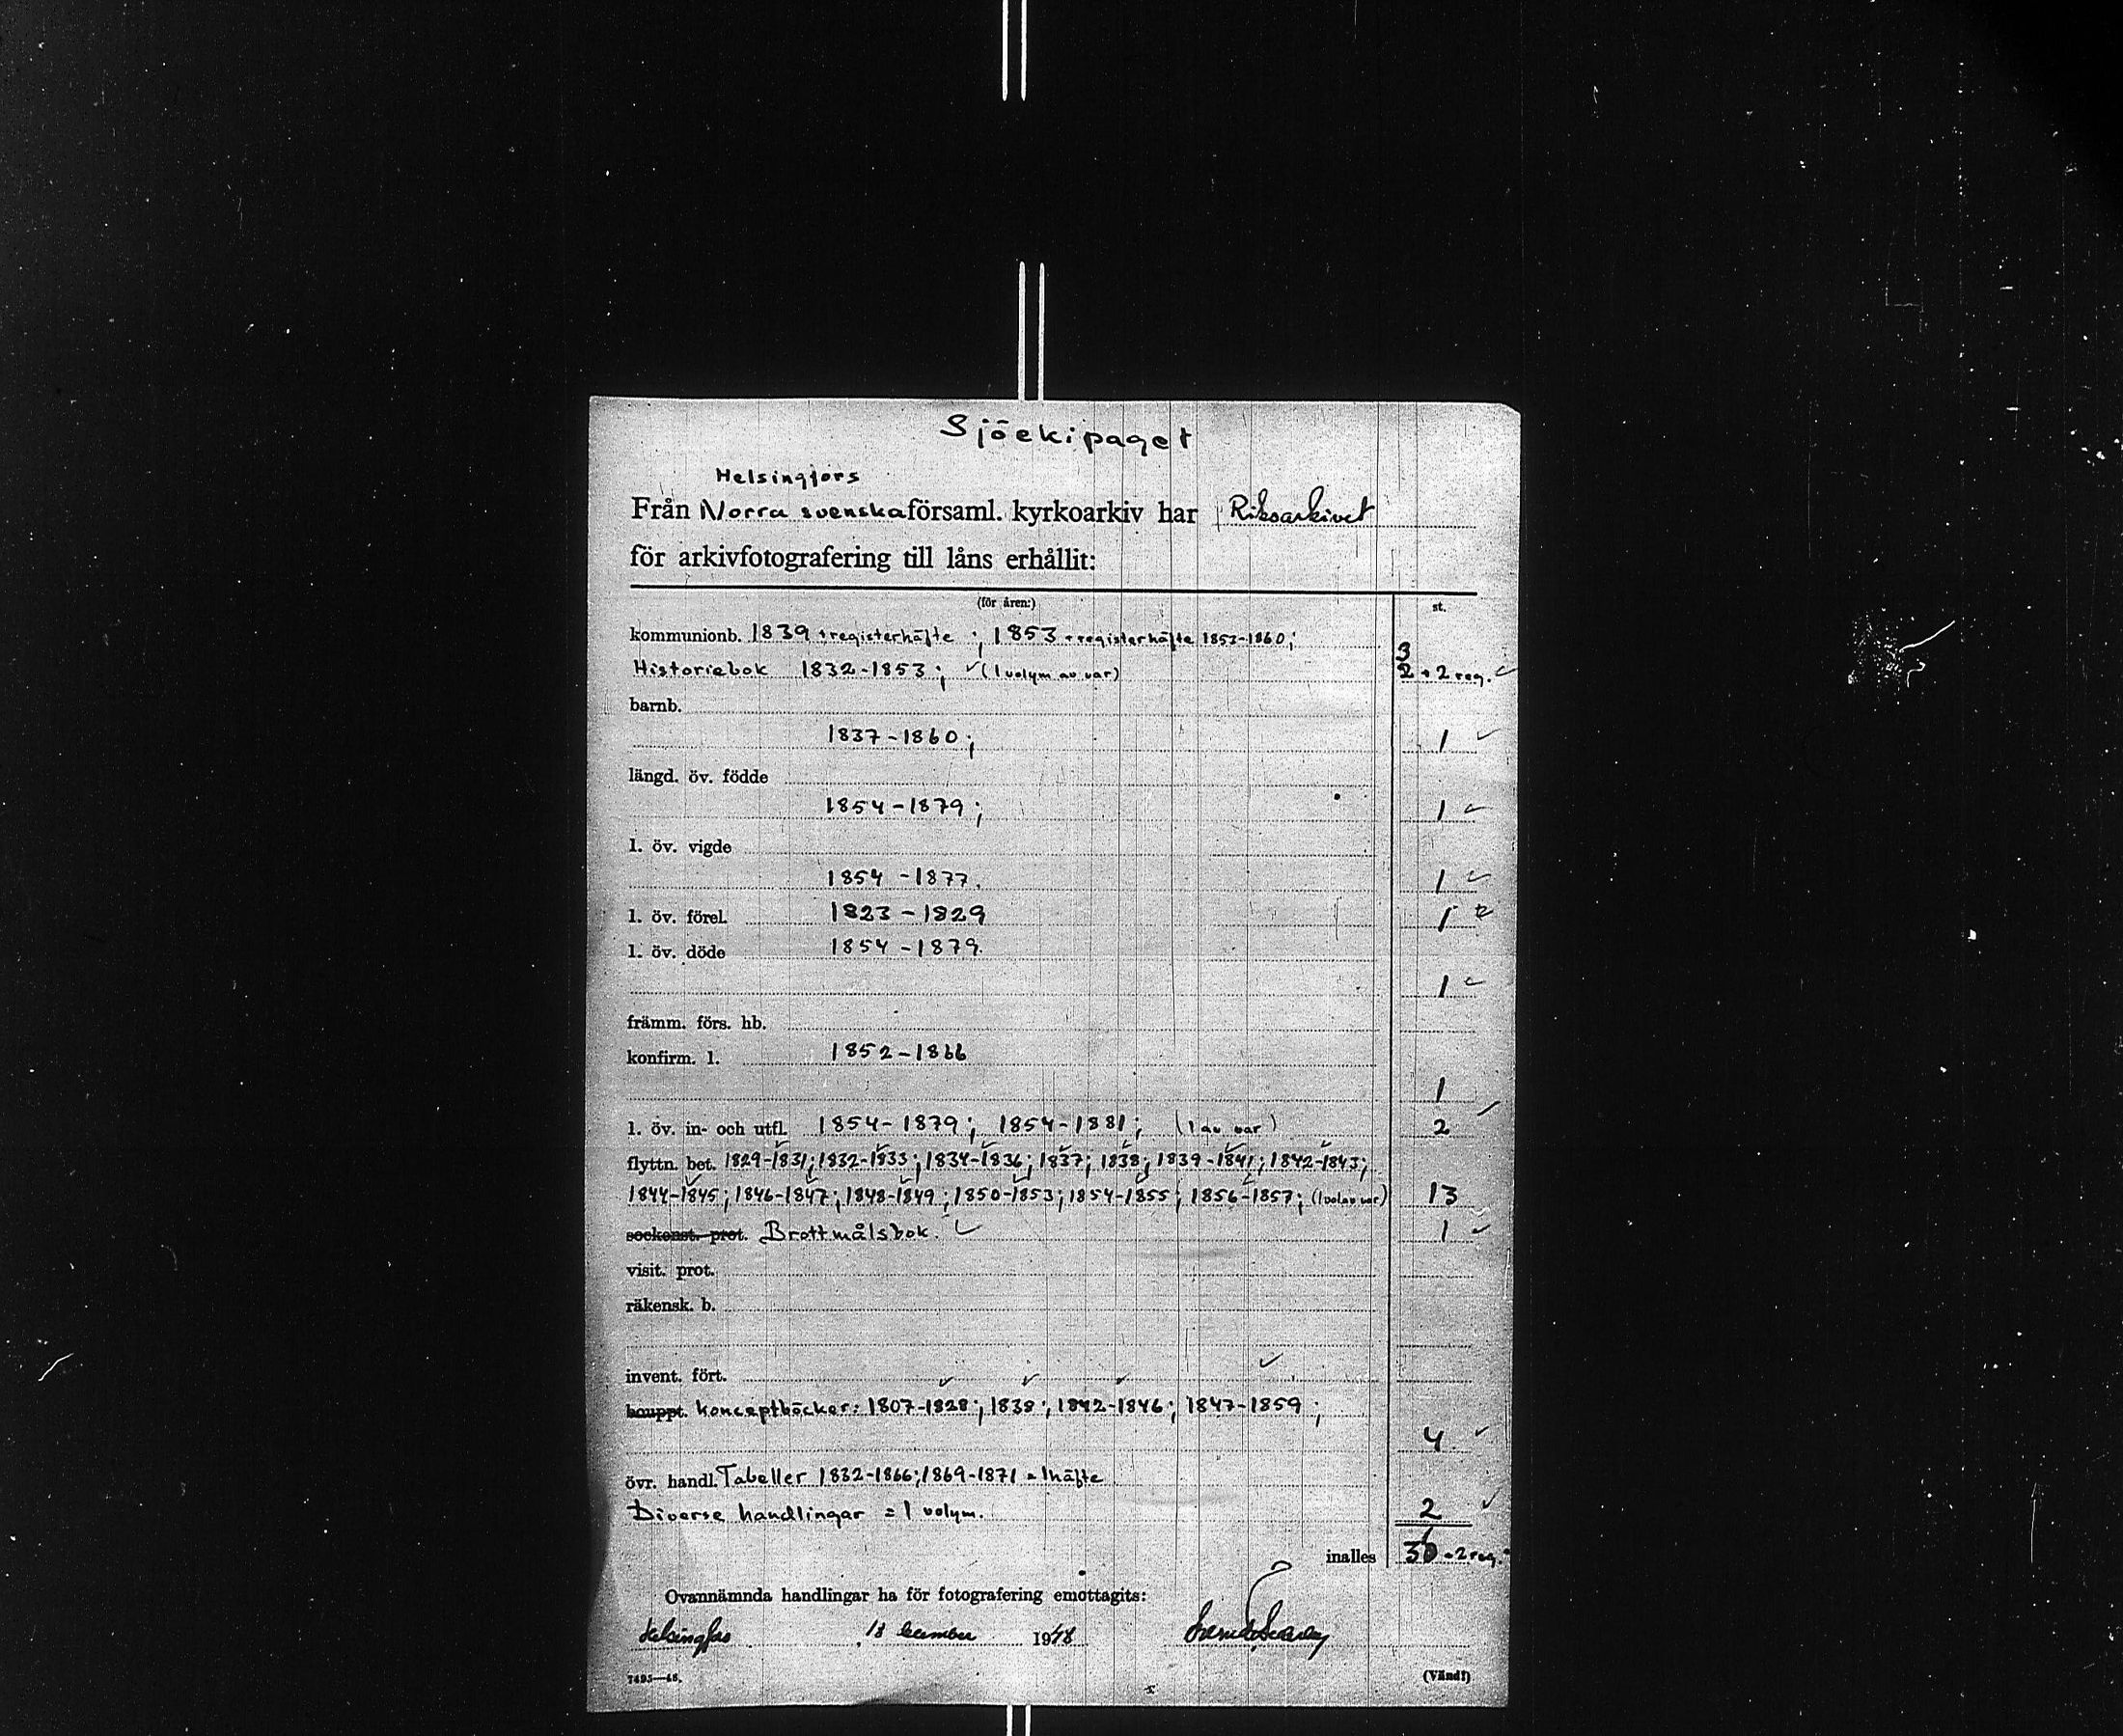 Sjöekipaget
Helsingfors
Från Norra svenska församl. kyrkoarkiv har Riksarkivet
för arkivfotografering till låns erhållit:
(för åren:) st.
kommunionb. 1839 + registerhäfte ; 1853 + registerhäfte 1853-1860;
3
Historiebok 1832-1853; ✓ (1 volym av var) 2 + 2 reg. ✓
barnb.
1837-1860; 1 ✓
längd. öv. födde
1854-1879; 1 ✓
l. öv. vigde
1854-1877. 1 ✓
l. öv. förel. 1823-1829 1
l. öv. döde 1854-1879.
1 ✓
främm. förs. hb.
konfirm. l. 1852-1866
1
l. öv. in- och utfl. 1854-1879; 1854-1881; (1 av var) 2 ✓
flyttn. bet. 1829-1831; 1832-1833; 1834-1836; 1837; 1838; 1839-1841; 1842-1843;
1844-1845; 1846-1847; 1848-1849; 1850-1853; 1854-1855; 1856-1857; (1 vol av var) 13
sockenst. prot. Brottmålsbok. ✓ 1 ✓
visit. prot.
räkensk. b.
invent. fört.
kauppt. Konceptböcker: 1807-1828; 1838; 1842-1846; 1847-1859;
4 ✓
övr. handl. Tabeller 1832-1866; 1869-1871 = 1 häfte
Diverse handlingar = 1 volym. 2 ✓
inalles 31 + 2 reg.
Ovannämnda handlingar ha för fotografering emottagits:
Helsingfors 18 december 1948
7495—48. (Vänd!)